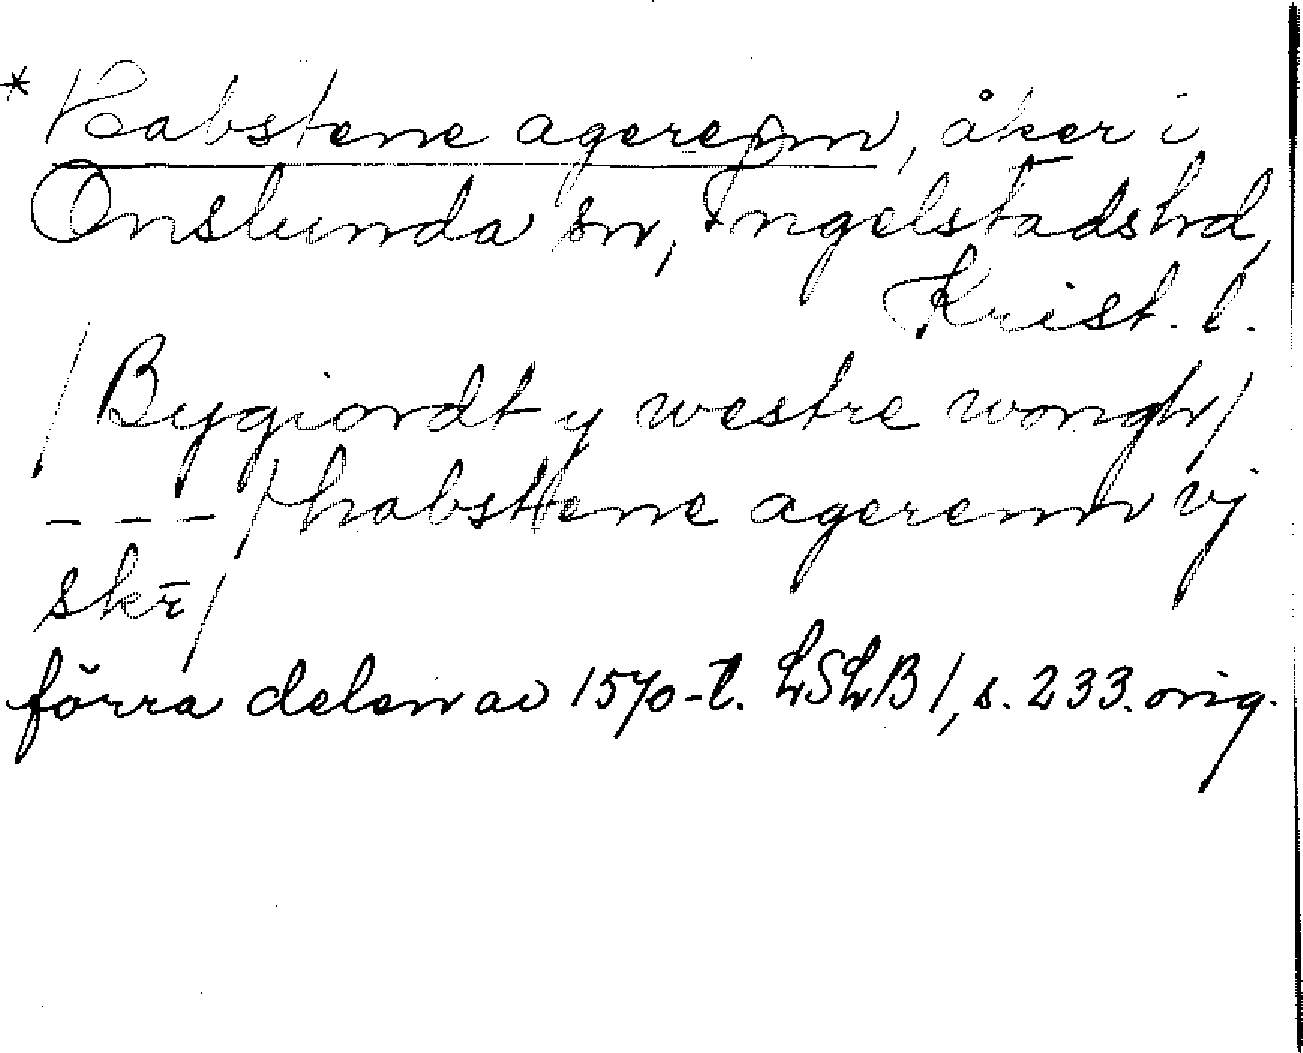 * Kabstene agerenn, åker i
Onslunda sn, Ingelstads hd,
Krist. l.
/ Bygiordt y westre wongh /
- - - / kabsttene agerenn vj
skr̄ /
förra delen av 1570-t. LSLB 1, s. 233. orig.